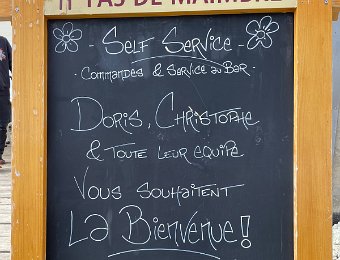 PAS DE MAIMBRÉ
- Self Service -
- Commandes & Service au Bar -
Doris, Christophe
& toute leur equipe
Vous souhaitent
La Bienvenue!